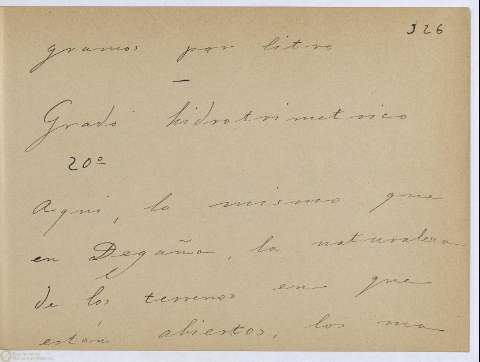 326
gramos por litro
—
Grado hidrotrimetrico
20º
Aqui, lo mismo que
en Degaña, la naturaleza
de los terrenos en que
están abiertos, los ma